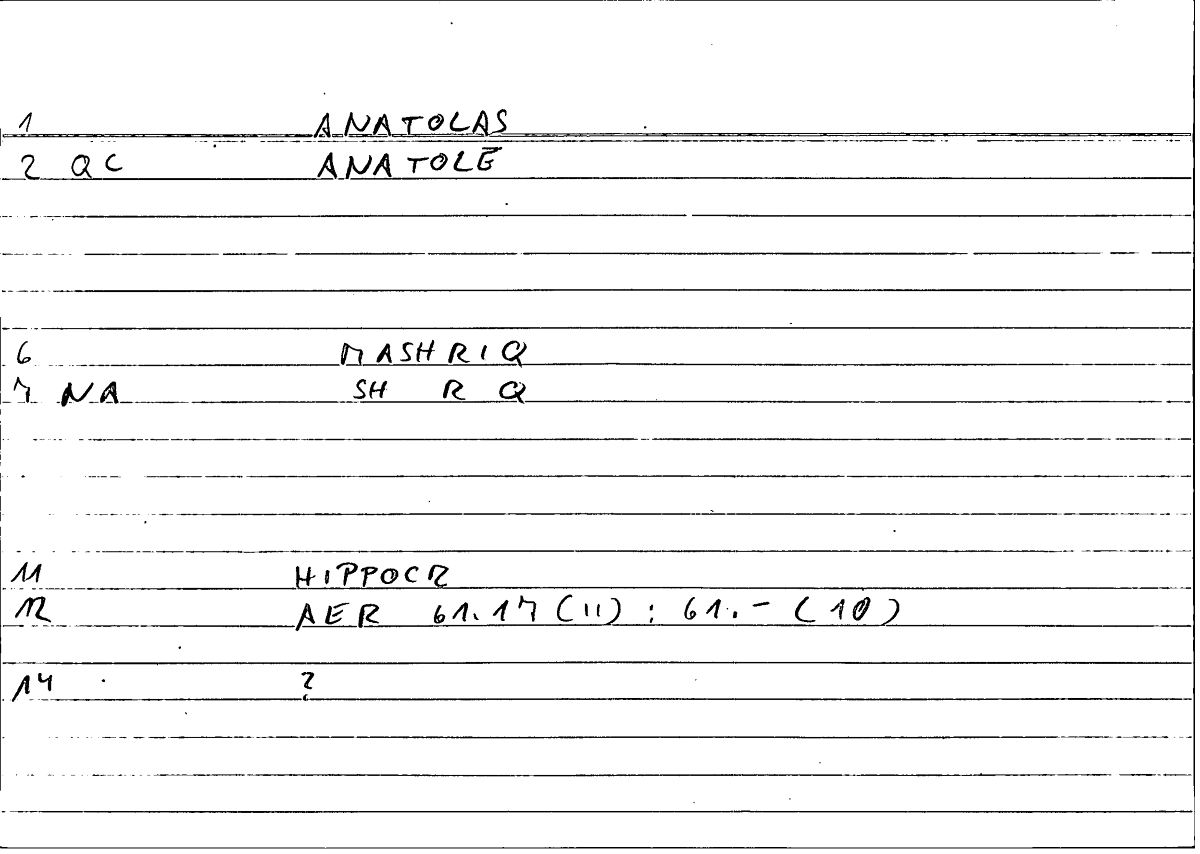 1 ANATOLAS
2 QC ANATOLĒ
6 MASHRIQ
7 NA SH R Q
11 HIPPOCR
12 AER 61.17 (11) : 61.- (10)
14 ?